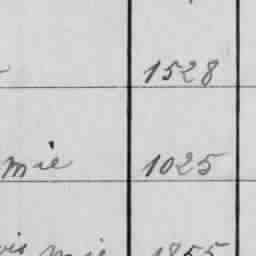 1528
mie 1025
vis mie 1855